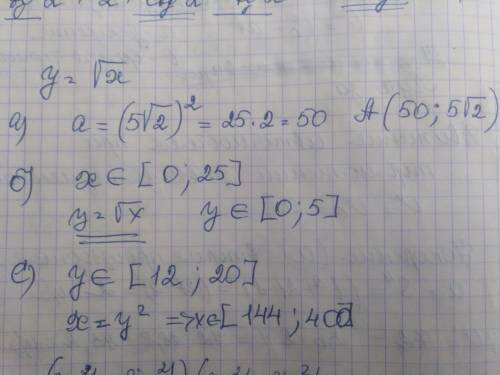 y = √x
а) a = (5√2)² = 25·2 = 50 A(50; 5√2)
б) x ∈ [0; 25]
y = √x y ∈ [0; 5]
с) y ∈ [12; 20]
x = y² => x ∈ [144; 400]